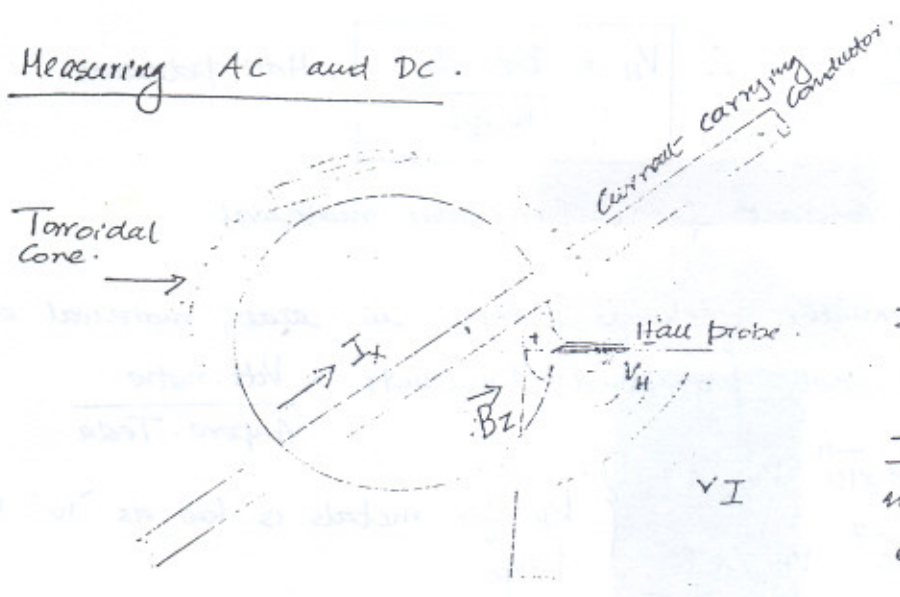 Measuring AC and DC.
Current carrying
conductor.
Torroidal
Core.
Ix
Hall probe
VH
Bz
I